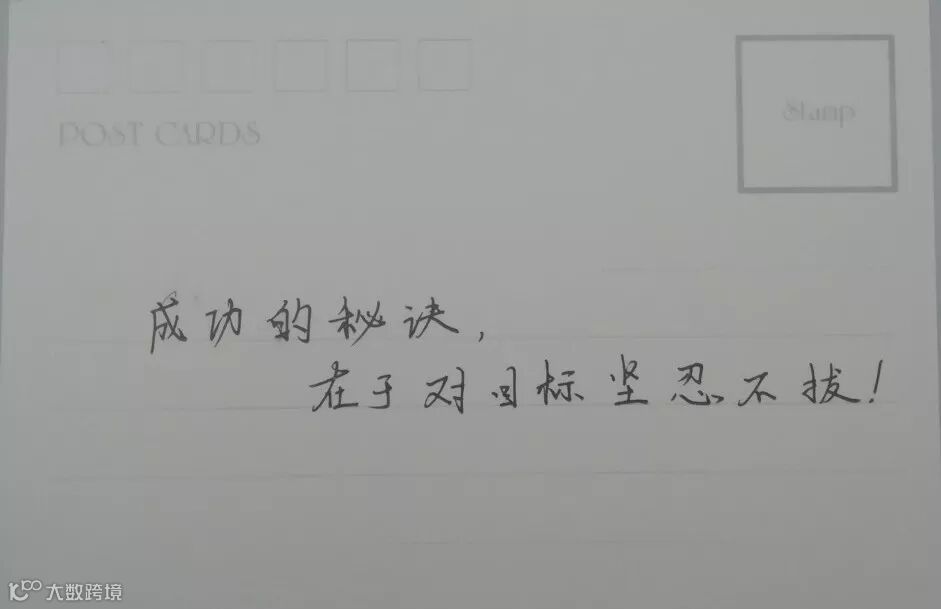 POST CARDS
Stamp
成功的秘诀,
在于对目标坚忍不拔!
大数跨境